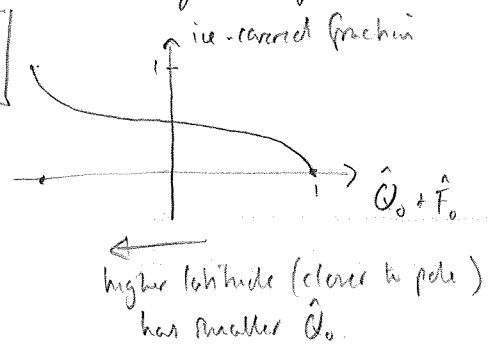 ice-covered fraction
1
1
Q̂₀ + F̂₀
higher latitude (closer to pole)
has smaller Q̂₀.